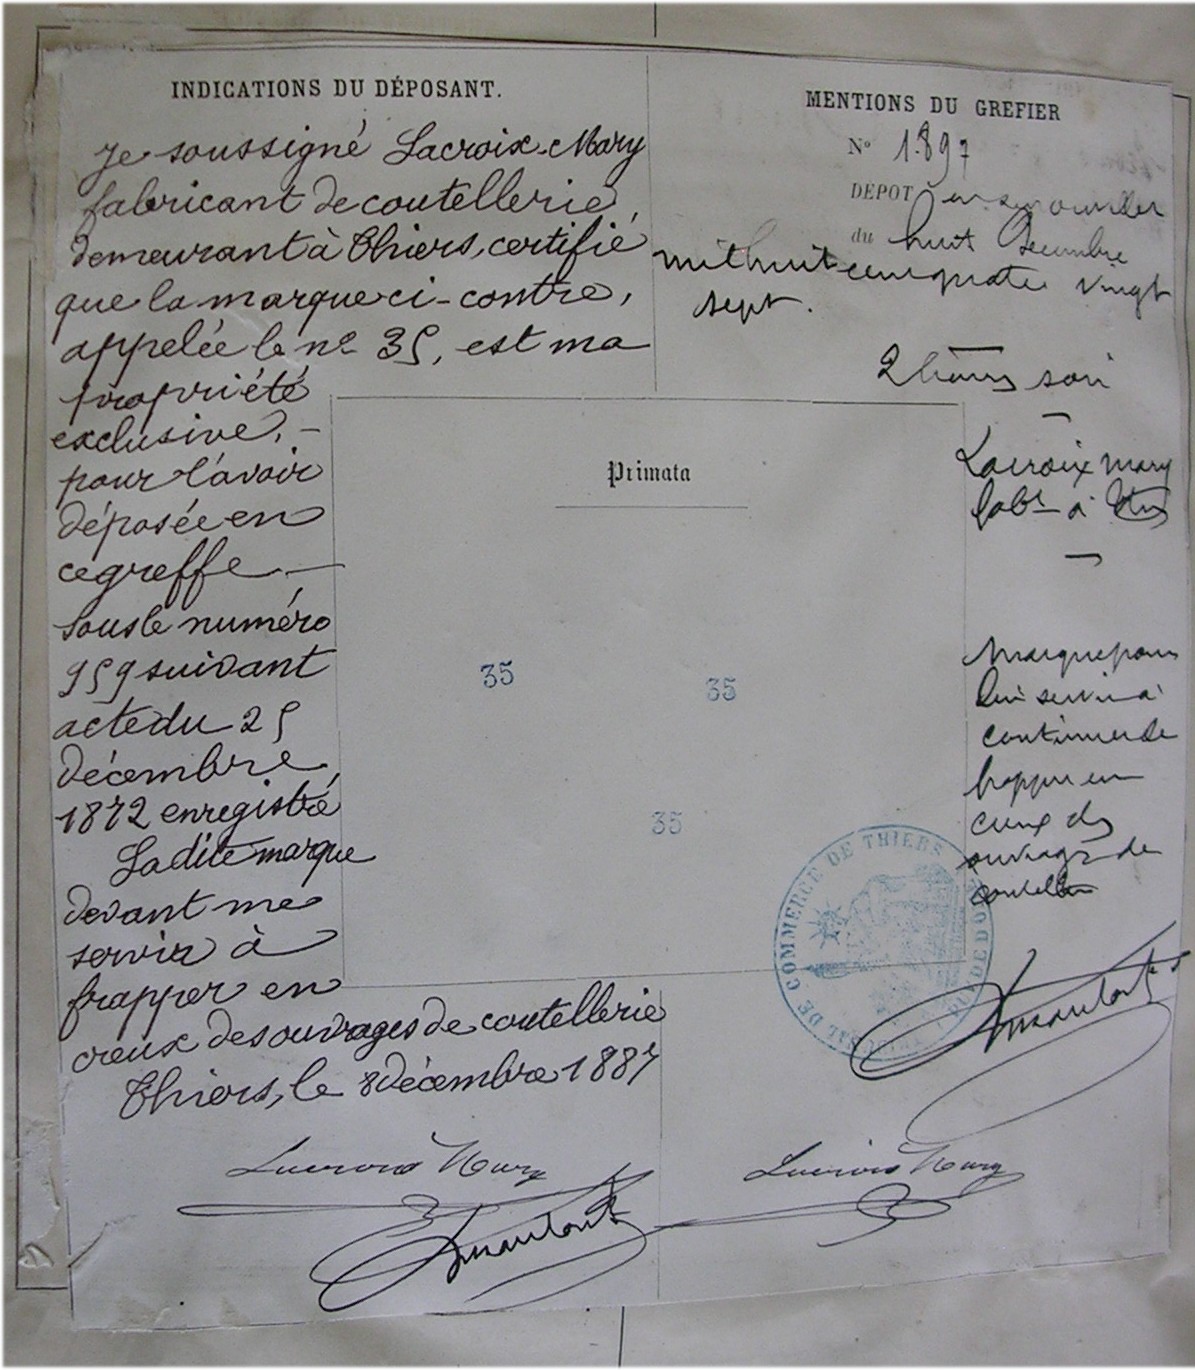 INDICATIONS DU DÉPOSANT.
Je soussigné Lacroix-Mary
fabricant de coutellerie,
demeurant à Thiers, certifie
que la marque ci-contre,
appelée le no 35, est ma
propriété
exclusive, -
pour l'avoir
déposée en
ce greffe. —
sous le numéro
959 suivant
acte du 25
décembre
1872 enregistré
La dite marque
devant me
servir à
frapper en
creux des ouvrages de coutellerie
Thiers, le 8 décembre 1887
MENTIONS DU GREFIER
No 1.897
DÉPOT
du huit Décembre
mil huit cent quatre vingt
sept.
2 heures soir
Lacroix Mary
fabt à
Marque pour
lui servir à
continuer de
frapper en
creux des
ouvrages de
coutellerie
Primata
35
35
35
TRIBUNAL DE COMMERCE DE THIERS
PUY DE DOME
Lacroix Mary
Lacroix Mary